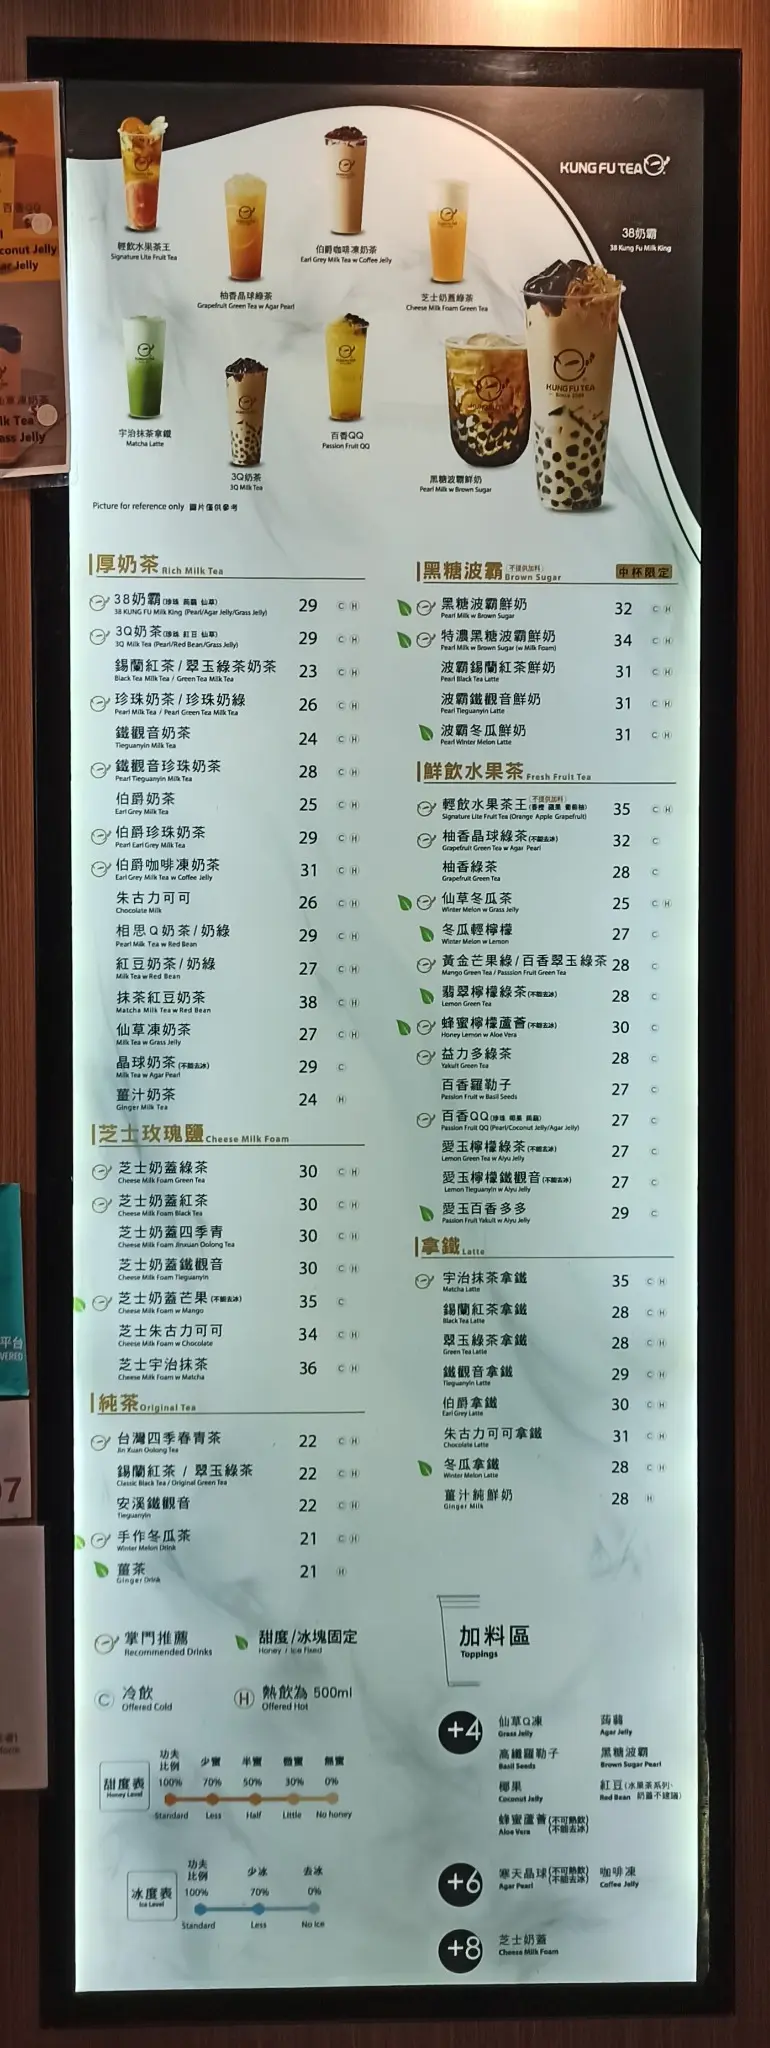 KUNG FU TEA
38奶霸
38 Kung Fu Milk King
輕飲水果茶王
Signature Lite Fruit Tea
柚香晶球綠茶
Grapefruit Green Tea w Agar Pearl
伯爵咖啡凍奶茶
Earl Grey Milk Tea w Coffee Jelly
芝士奶蓋綠茶
Cheese Milk Foam Green Tea
宇治抹茶拿鐵
Matcha Latte
3Q奶茶
3Q Milk Tea
百香QQ
Passion Fruit QQ
黑糖波霸鮮奶
Pearl Milk w Brown Sugar
Picture for reference only 圖片僅供參考
厚奶茶 Rich Milk Tea
38奶霸(珍珠 蒟蒻 仙草) 29 C H
38 KUNG FU Milk King (Pearl/Agar Jelly/Grass Jelly)
3Q奶茶(珍珠 紅豆 仙草) 29 C H
3Q Milk Tea (Pearl/Red Bean/Grass Jelly)
錫蘭紅茶/翠玉綠茶奶茶 23 C H
Black Tea Milk Tea / Green Tea Milk Tea
珍珠奶茶/珍珠奶綠 26 C H
Pearl Milk Tea / Pearl Green Tea Milk Tea
鐵觀音奶茶 24 C H
Tieguanyin Milk Tea
鐵觀音珍珠奶茶 28 C H
Pearl Tieguanyin Milk Tea
伯爵奶茶 25 C H
Earl Grey Milk Tea
伯爵珍珠奶茶 29 C H
Pearl Earl Grey Milk Tea
伯爵咖啡凍奶茶 31 C H
Earl Grey Milk Tea w Coffee Jelly
朱古力可可 26 C H
Chocolate Milk
相思Q奶茶/奶綠 29 C H
Pearl Milk Tea w Red Bean
紅豆奶茶/奶綠 27 C H
Milk Tea w Red Bean
抹茶紅豆奶茶 38 C H
Matcha Milk Tea w Red Bean
仙草凍奶茶 27 C H
Milk Tea w Grass Jelly
晶球奶茶(不能去冰) 29 C
Milk Tea w Agar Pearl
薑汁奶茶 24 H
Ginger Milk Tea
芝士玫瑰鹽 Cheese Milk Foam
芝士奶蓋綠茶 30 C H
Cheese Milk Foam Green Tea
芝士奶蓋紅茶 30 C H
Cheese Milk Foam Black Tea
芝士奶蓋四季青 30 C H
Cheese Milk Foam Jinxuan Oolong Tea
芝士奶蓋鐵觀音 30 C H
Cheese Milk Foam Tieguanyin
芝士奶蓋芒果(不能去冰) 35 C
Cheese Milk Foam w Mango
芝士朱古力可可 34 C H
Cheese Milk Foam w Chocolate
芝士宇治抹茶 36 C H
Cheese Milk Foam w Matcha
純茶 Original Tea
台灣四季春青茶 22 C H
Jin Xuan Oolong Tea
錫蘭紅茶 / 翠玉綠茶 22 C H
Classic Black Tea / Original Green Tea
安溪鐵觀音 22 C H
Tieguanyin
手作冬瓜茶 21 C H
Winter Melon Drink
薑茶 21 H
Ginger Drink
黑糖波霸 不提供加料 Brown Sugar 中杯限定
黑糖波霸鮮奶 32 C H
Pearl Milk w Brown Sugar
特濃黑糖波霸鮮奶 34 C H
Pearl Milk w Brown Sugar (w Milk Foam)
波霸錫蘭紅茶鮮奶 31 C H
Pearl Black Tea Latte
波霸鐵觀音鮮奶 31 C H
Pearl Tieguanyin Latte
波霸冬瓜鮮奶 31 C H
Pearl Winter Melon Latte
鮮飲水果茶 Fresh Fruit Tea
輕飲水果茶王 不提供加料 (香橙 蘋果 葡萄柚) 35 C H
Signature Lite Fruit Tea (Orange Apple Grapefruit)
柚香晶球綠茶(不能去冰) 32 C
Grapefruit Green Tea w Agar Pearl
柚香綠茶 28 C
Grapefruit Green Tea
仙草冬瓜茶 25 C H
Winter Melon w Grass Jelly
冬瓜輕檸檬 27 C
Winter Melon w Lemon
黃金芒果綠/百香翠玉綠茶 28 C
Mango Green Tea / Passsion Fruit Green Tea
翡翠檸檬綠茶(不能去冰) 28 C
Lemon Green Tea
蜂蜜檸檬蘆薈(不能去冰) 30 C
Honey Lemon w Aloe Vera
益力多綠茶 28 C
Yakult Green Tea
百香羅勒子 27 C
Passion Fruit w Basil Seeds
百香QQ(珍珠 椰果 蒟蒻) 27 C
Passion Fruit QQ (Pearl/Coconut Jelly/Agar Jelly)
愛玉檸檬綠茶(不能去冰) 27 C
Lemon Green Tea w Aiyu Jelly
愛玉檸檬鐵觀音(不能去冰) 27 C
Lemon Tieguanyin w Aiyu Jelly
愛玉百香多多 29 C
Passion Fruit Yakult w Aiyu Jelly
拿鐵 Latte
宇治抹茶拿鐵 35 C H
Matcha Latte
錫蘭紅茶拿鐵 28 C H
Black Tea Latte
翠玉綠茶拿鐵 28 C H
Green Tea Latte
鐵觀音拿鐵 29 C H
Tieguanyin Latte
伯爵拿鐵 30 C H
Earl Grey Latte
朱古力可可拿鐵 31 C H
Chocolate Latte
冬瓜拿鐵 28 C H
Winter Melon Latte
薑汁純鮮奶 28 H
Ginger Milk
掌門推薦
Recommended Drinks
甜度/冰塊固定
Honey / Ice Fixed
C 冷飲
Offered Cold
H 熱飲為 500ml
Offered Hot
甜度表
Honey Level
功夫比例 少蜜 半蜜 微蜜 無蜜
100% 70% 50% 30% 0%
Standard Less Half Little No honey
冰度表
Ice Level
功夫比例 少冰 去冰
100% 70% 0%
Standard Less No Ice
加料區
Toppings
+4
仙草Q凍 蒟蒻
Grass Jelly Agar Jelly
高纖羅勒子 黑糖波霸
Basil Seeds Brown Sugar Pearl
椰果 紅豆(水果茶系列、奶蓋不建議)
Coconut Jelly Red Bean
蜂蜜蘆薈(不可熱飲)(不能去冰)
Aloe Vera
+6
寒天晶球(不可熱飲)(不能去冰) 咖啡凍
Agar Pearl Coffee Jelly
+8
芝士奶蓋
Cheese Milk Foam
百香QQ
conut Jelly
ar Jelly
草凍奶茶
lk Tea
ass Jelly
平台
VERED
07